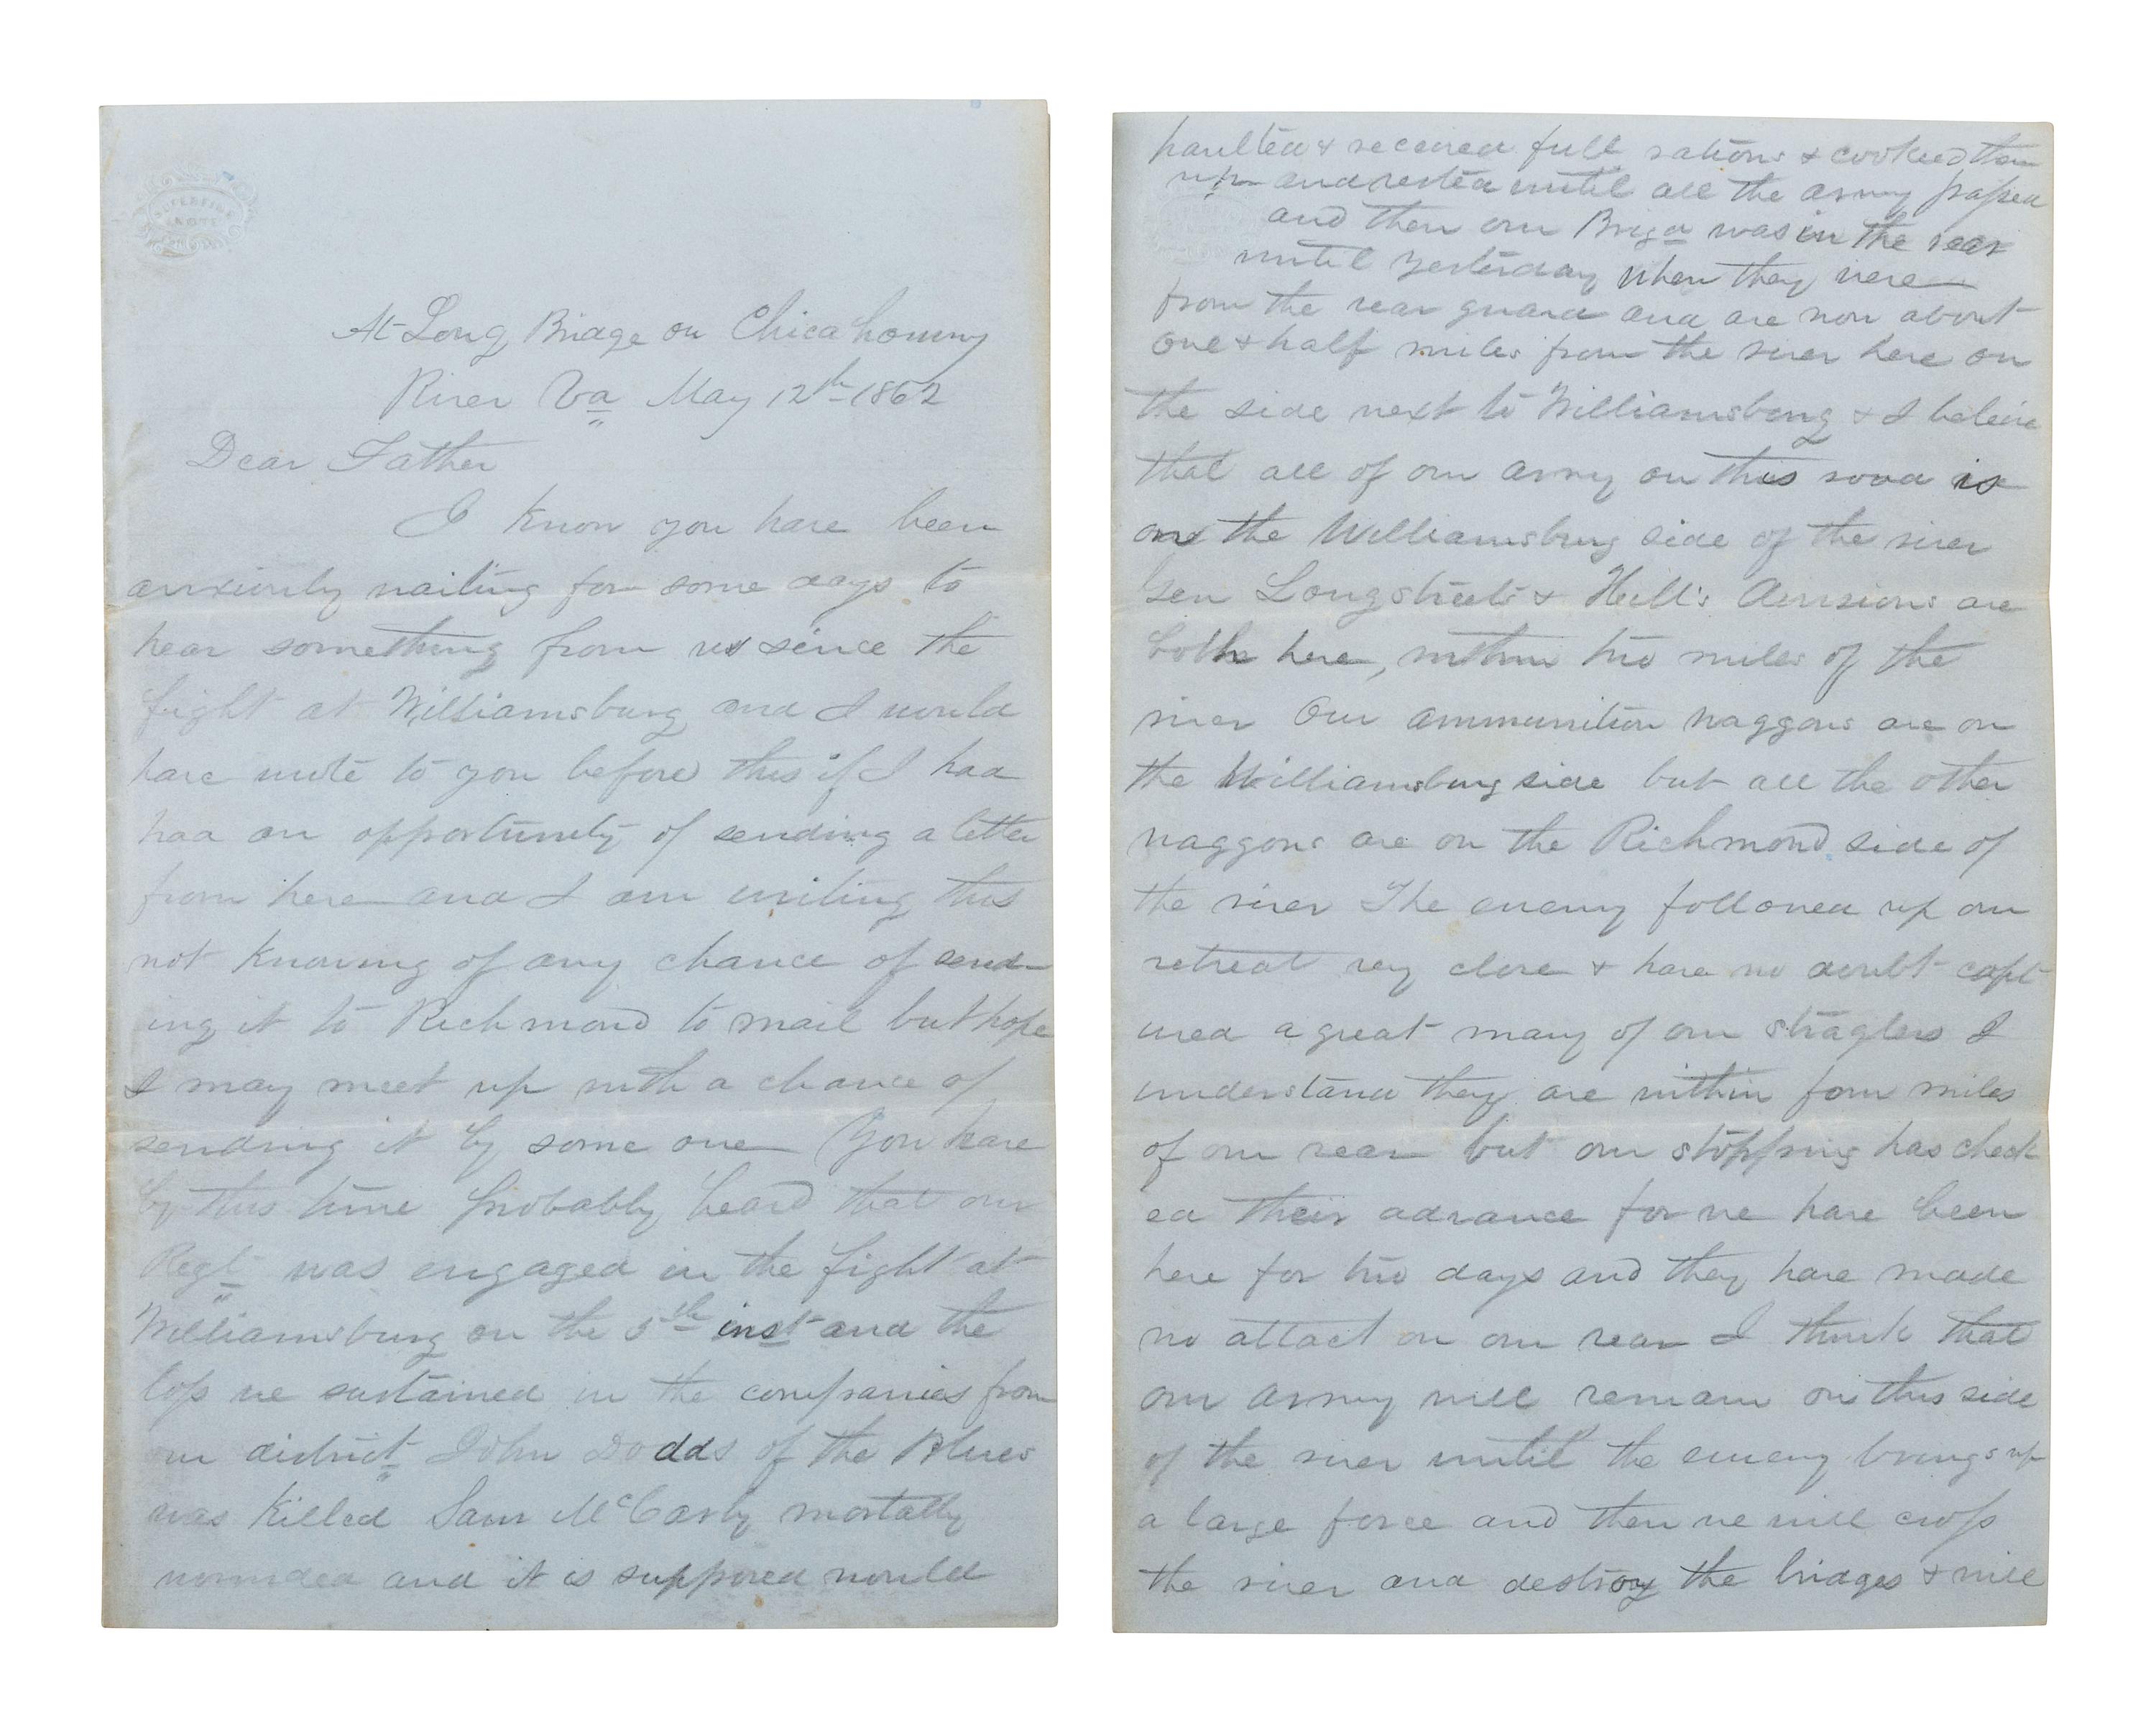 SUPERFINE
NOTE
At Long Bridge on Chicahominy
River Va May 12th 1862
Dear Father
I know you have been
anxiously waiting for some days to
hear something from us since the
fight at Williamsburg and I would
have wrote to you before this if I had
had an opportunity of sending a letter
from here and I am writing this
not knowing of any chance of send-
ing it to Richmond to mail but hope
I may meet up with a chance of
sending it by some one You have
by this time probably heard that our
Regt was engaged in the fight at
Williamsburg on the 5th inst and the
loss we sustained in the companies from
our district John Dodds of the Blues
was killed Sam McCarty mortally
wounded and it is supposed would
haulted & received full rations & cooked them
up and rested until all the army passed
and then our Brigd was in the rear
until yesterday when they were
from the rear guard and are now about
one & half miles from the river here on
the side next to Williamsburg & I beleive
that all of our army on this road is
on the Williamsburg side of the river
Gen Longstreets & Hill's divisions are
both here, within two miles of the
river Our ammunition waggons are on
the Williamsburg side but all the other
waggons are on the Richmond side of
the river The enemy followed up our
retreat very close & have no doubt capt
ured a great many of our straglers I
understand they are within four miles
of our rear but our stopping has check
ed their advance for we have been
here for two days and they have made
no attact on our rear I think that
our army will remain on this side
of the river until the enemy brings up
a large force and then we will cross
the river and destroy the bridges & will